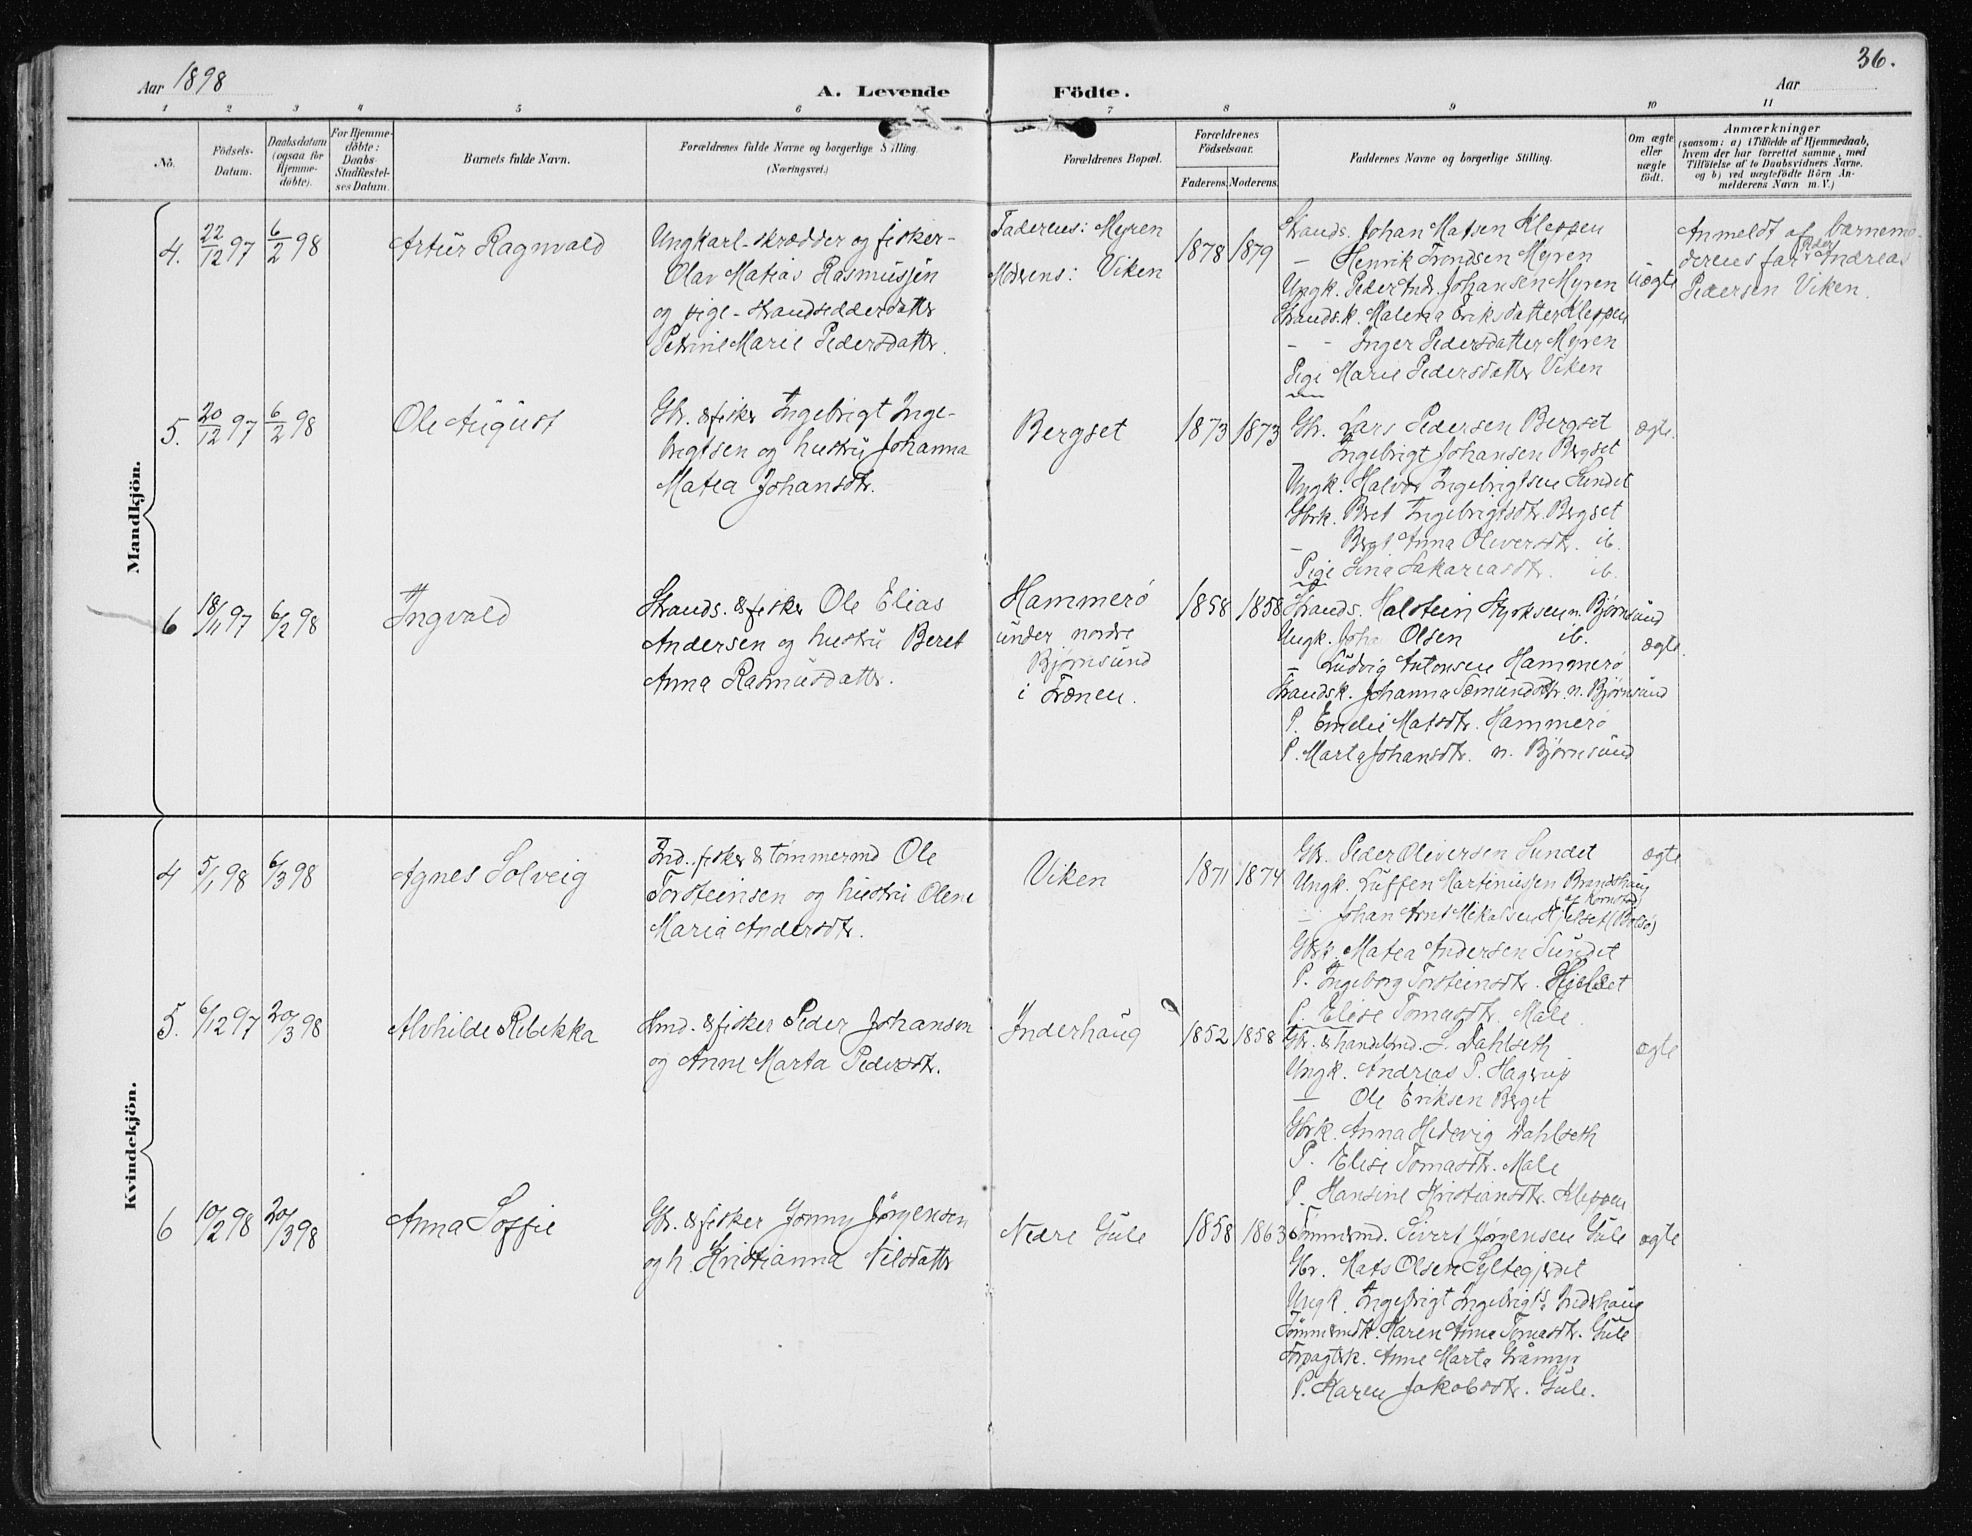 36.
Aar 1898
A. Levende Födte.
Aar
1 2 3 4 5 6 7 8 9 10 11
No.
Födsels-Datum.
Daabsdatum (ogsaa for Hjemme-döbte).
For Hjemme-döbte: Daabs-Stadfæstel-ses Datum.
Barnets fulde Navn.
Forældrenes fulde Navne og borgerlige Stilling.
(Næringsvei.)
Forældrenes Bopæl.
Forældrenes Födselsaar.
Faderens. Moderens.
Faddernes Navne og borgerlige Stilling.
Om ægte eller uægte födt.
Anmærkninger
(saasom: a) i Tilfælde af Hjemmedaab,
hvem der har forrettet samme, med
Tilföielse af to Daabsvidners Navne.
og b) ved uægtefödte Börn An-
melderens Navn m. V.)
Mandkjön.
4. 22/12 97 6/2 98 Artur Ragnvald
Ungkarl-skrædder og fisker-
Olav Matias Rasmussen
og pige-strandsidderdatter
Petrine Marie Pedersdatter.
Faderens: Myren
Moderens: Viken
1878 1879
Strands. Johan Matsen Kleppen
— Henrik Trondsen Myren
Ungk. Peder Andr. Johansen Myren
Strandsk. Malena Eriksdatter Kleppen
- - Inger Pedersdatter Myren
Pige Marie Pedersdatter Viken
uægte
Anmeldt af barnemo-
derens far Peder Andreas
Pedersen Viken.
5. 20/12 97 6/2 98 Ole August
Gbr. & fisker Ingebrigt Inge-
brigtsen og hustru Johanna
Matea Johansdtr.
Bergset
1873 1873
Gbr. Lars Pedersen Bergset
— Ingebrigt Johansen Bergset
Ungk. Halvor Ingebrigtsen Sundet
Gbrk. Beret Ingebrigtsdtr. Bergset
— Bergt Anna Oliversdtr. ib.
Pige Lina Sakariasdtr. ib.
ægte.
6 18/11 97 6/2 98 Ingvald
Strands. & fisker Ole Elias
Andersen og hustru Beret
Anna Rasmusdatter.
Hammerö
under nordre
Björnsund
i Frænen.
1858 1858
Strands. Halstein Styrksen n. Björnsund
Ungk. Joh Olsen ib.
— Ludvig Antonsen Hammerö
Strandsk. Johanna Sæmundsdtr. n. Björnsund
P. Emelie Matsdtr. Hammerö
P. Marta Johansdtr. n. Björnsund
ægte.
Kvindekjön.
4 5/1 98 6/3 98 Agnes Solveig
Ind. fisker & tömmermd Ole
Torsteinsen og hustru Olene
Maria Andersdtr.
Viken
1871 1874
Gbr. Peder Oliversen Sundet
Ungk. Luffen Martinussen Brandshaug
(af Kornstad)
— Johan Arnt Mikalsen Hjelset (Bolsö)
Gbrk. Matea Andersen Sundet
P. Ingeborg Torsteinsdtr. Hjelset
P. Elise Tomasdtr. Male
ægte
5. 6/12 97 20/3 98 Alvhilde Rebekka
Hmd. & fisker Peder Johansen
og Anne Marta Pedersdtr.
Inderhaug
1852 1858
Gbr. & handelsmd. L. Dahlseth
Ungk. Andreas P. Hagerup
— Ole Eriksen Berget
Gbrk. Anna Hedevig Dahlseth
P. Elise Tomasdtr. Male
P. Hansine Kristiansdtr. Kleppen
ægte
6 10/2 98 20/3 98 Anna Soffie
Gbr. & fisker Jonny Jörgensen
og h. Kristianna Nilsdatter
Nedre Gule
1858 1863
Tömmermd. Sivert Jörgensen Gule
Gbr. Mats Olsen Syltegjerdet
Ungk. Ingebrigt Ingebrigts. Inderhaug
Tömmermdk. Maren Anne Tomasdtr. Gule
Forpagterk. Anne Marta Gramyr
P. Karen Jakobsdtr. Gule.
ægte